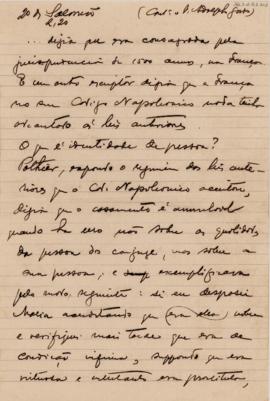 20 de Salomão
(Cont. o D. Adolpho Gordo)
... dizia que era consagrada pela
jurisprudencia de 1500 annos, na França
E um outro escriptor dizia que a França
no seu Codigo Napoleonico nada tinha
as leis anteriores.
O que é identidade de pessoa?
Pothier, expondo o regimen das leis ante-
riores que o Cod. Napoleonico aceitou,
dizia que o casamento é annullavel
quando ha erro não sobre as qualidades
da pessoa do conjuge, mas sobre a
sua pessoa; e exemplificava
pelo modo seguinte: si eu desposei
Maria acreditando que (era ella) nobre
e verifiquei mais tarde que era de
condição infima, suppondo que era
virtuosa e era prostituta,